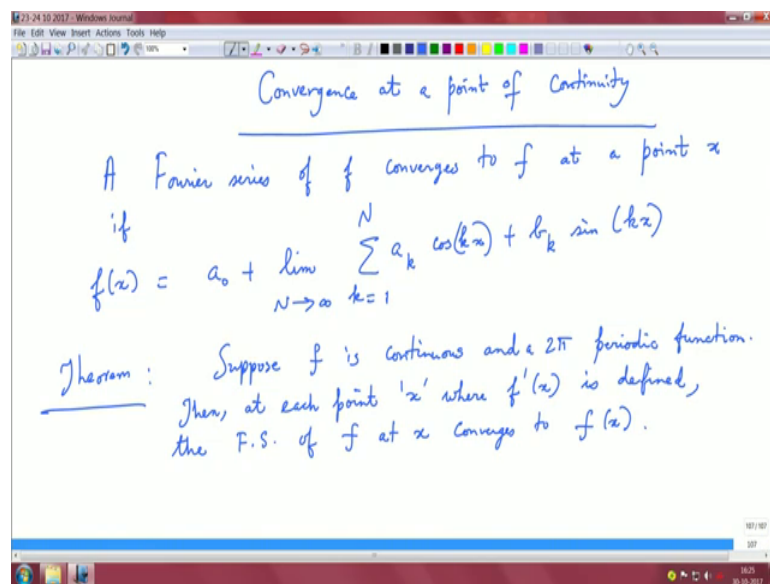 23-24 10 2017 - Windows Journal
File Edit View Insert Actions Tools Help
100%
Convergence at a point of Continuity
A Fourier series of f converges to f at a point x
if
f(x) = a₀ + lim N→∞ ∑ k=1 N aₖ cos(kx) + bₖ sin(kx)
Theorem : Suppose f is continuous and a 2π periodic function.
Then, at each point 'x' where f'(x) is defined,
the F.S. of f at x converges to f(x).
107/107
107
16:25
30-10-2017